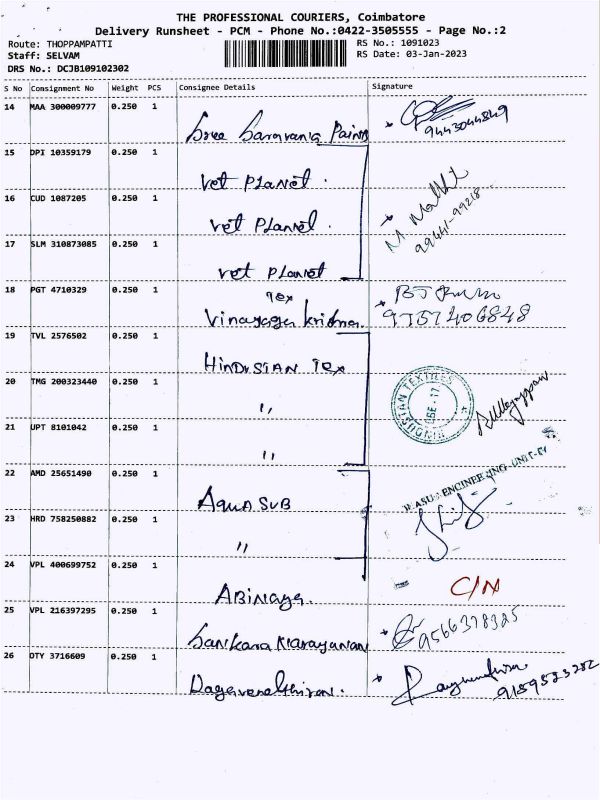 THE PROFESSIONAL COURIERS, Coimbatore
Delivery Runsheet - PCM - Phone No.:0422-3505555 - Page No.:2
Route: THOPPAMPATTI RS No.: 1091023
Staff: SELVAM RS Date: 03-Jan-2023
DRS No.: DCJB109102302
S No Consignment No Weight PCS Consignee Details Signature
14 MAA 300009777 0.250 1
Sree Saravana Paints 9443044849
15 DPI 10359179 0.250 1
vet Planet .
16 CUD 1087205 0.250 1
vet Planet . M Malhi 99441-99218
17 SLM 310873085 0.250 1
vet Planet
18 PGT 4710329 0.250 1
Tex
Vinayaga Krishna
19 TVL 2576502 0.250 1
HINDUSTAN Tex
20 TMG 200323440 0.250 1
"
TEXTILES
21 UPT 8101042 0.250 1
"
22 AMD 25651490 0.250 1
Aqua SUB
ENGINEERING-UNIT-
23 HRD 758250882 0.250 1
"
24 VPL 400699752 0.250 1
Abinaya. C/N
25 VPL 216397295 0.250 1
Sankara Narayanan 9566378325
26 OTY 3716609 0.250 1